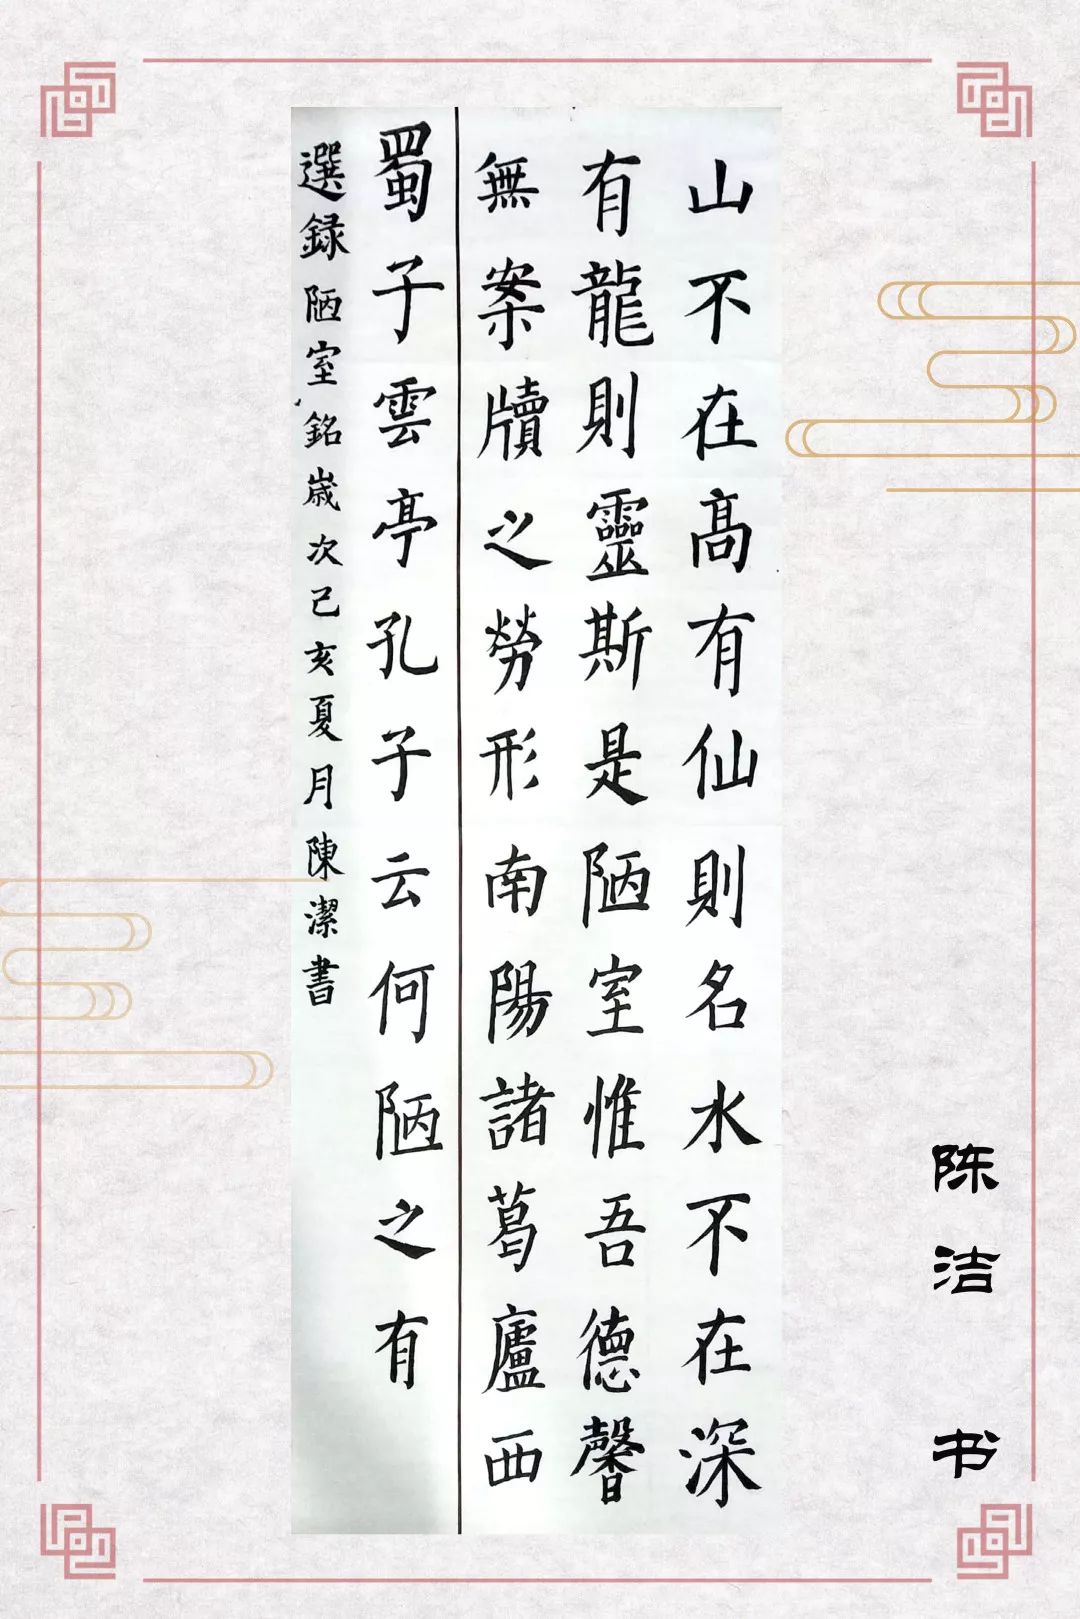 山不在高有仙則名水不在深
有龍則靈斯是陋室惟吾德馨
無案牘之勞形南陽諸葛廬西
蜀子雲亭孔子云何陋之有
選録陋室銘歲次己亥夏月陳潔書
陈洁书